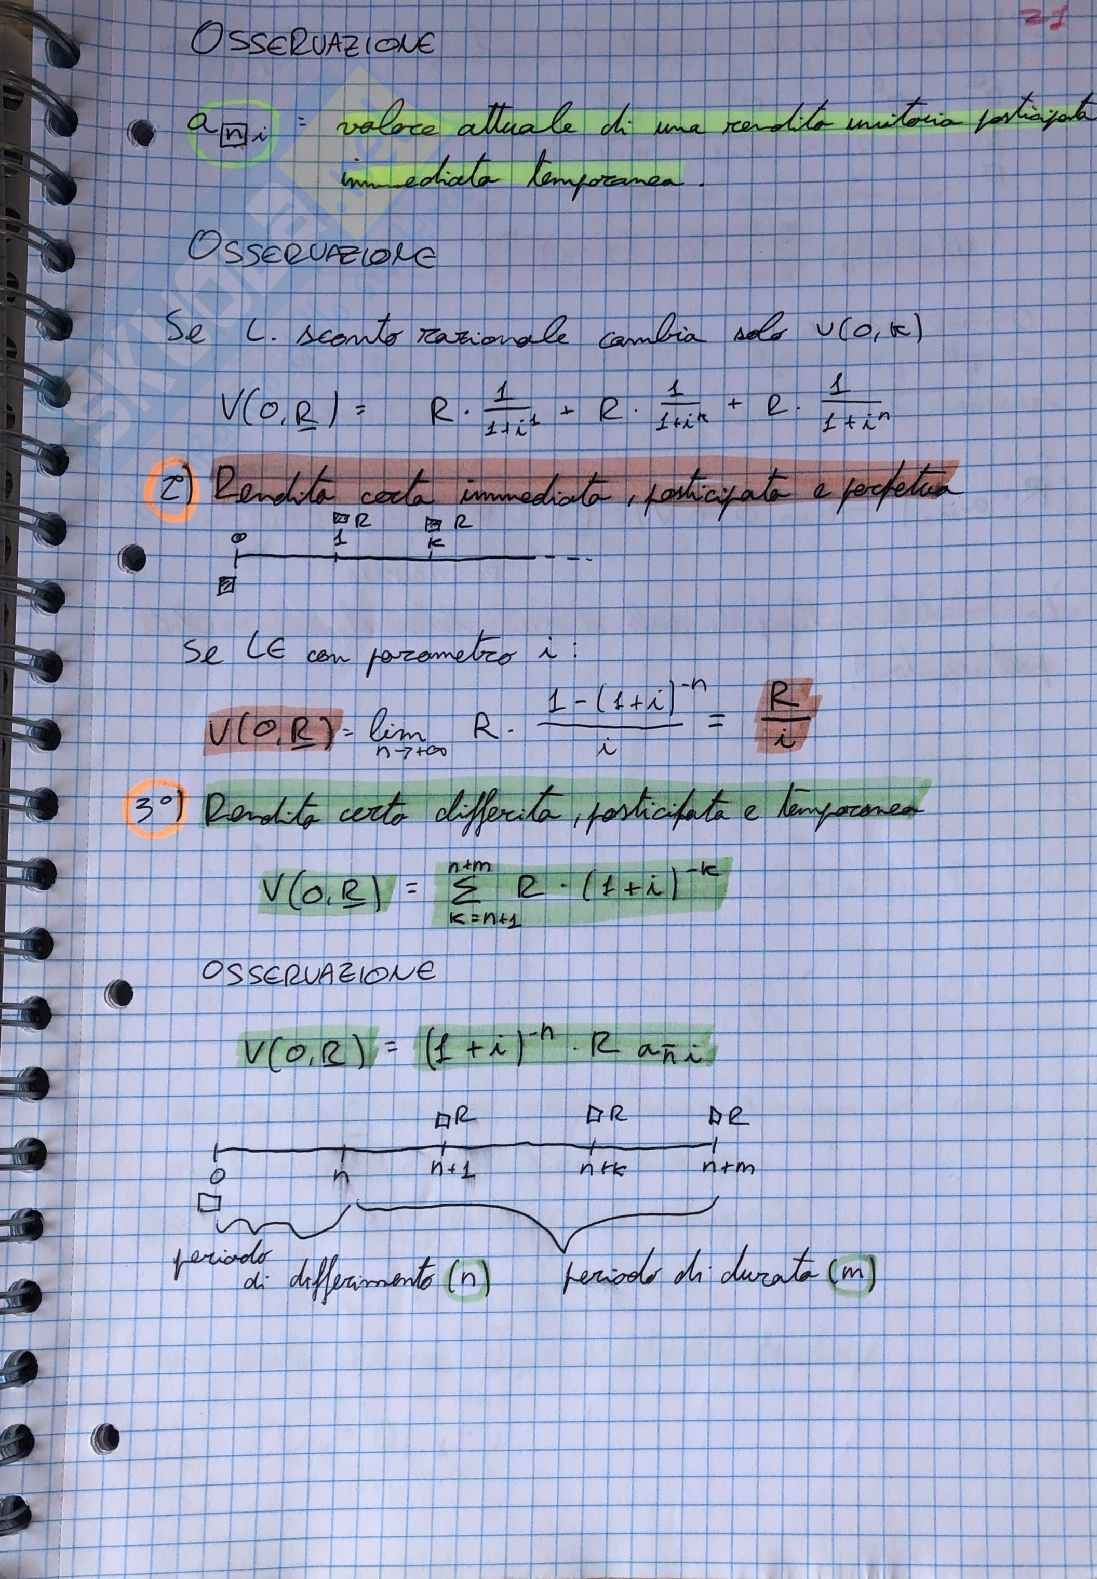 21
OSSERVAZIONE
a n i = valore attuale di una rendita unitaria posticipata
immediata temporanea.
OSSERVAZIONE
Se L. sconto razionale cambia solo v(0,k)
V(0,R) = R · 1/1+i¹ + R · 1/1+iᵏ + R · 1/1+iⁿ
2) Rendita certa immediata, posticipata e perpetua
R R
0 1 k
Se LE con parametro i:
V(0,R) = lim n→+∞ R · 1-(1+i)⁻ⁿ/i = R/i
3°) Rendita certa differita, posticipata e temporanea
V(0,R) = n+m Σ k=n+1 R · (1+i)⁻ᵏ
OSSERVAZIONE
V(0,R) = (1+i)⁻ⁿ · R a n i
R R R
0 n n+1 n+k n+m
periodo
di differimento (n) periodo di durata (m)
SKUOLA